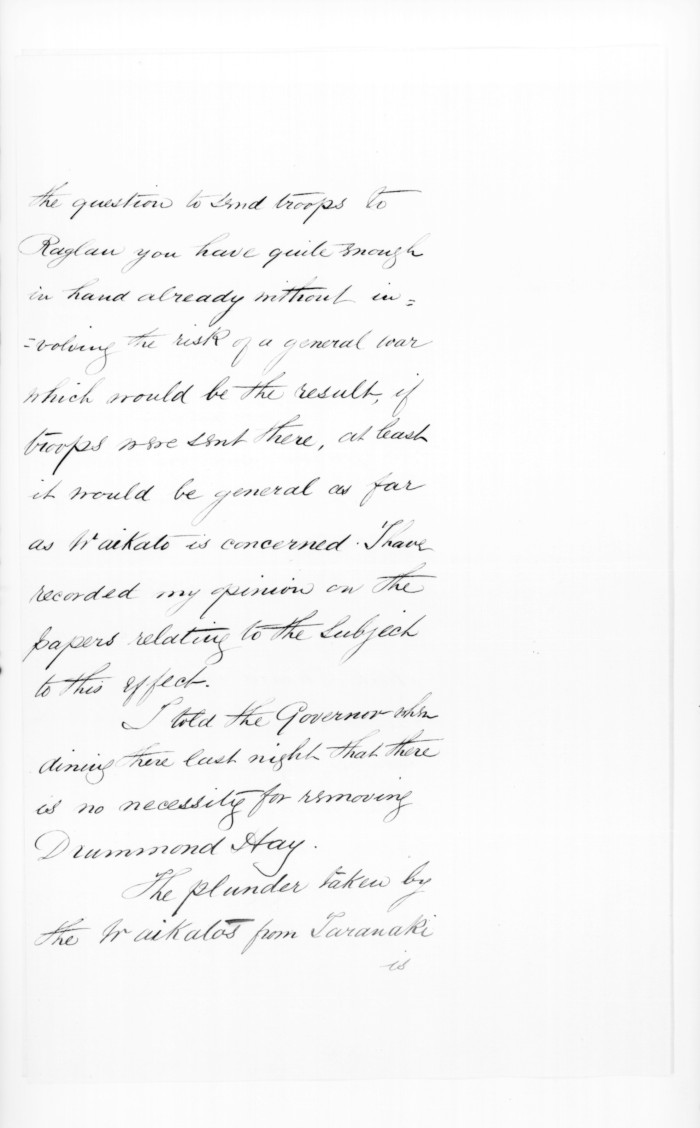 the question to send troops to
Raglan you have quite enough
in hand already without in=
=volving the risk of a general war
which would be the result, if
troops were sent there, at least
it would be general as far
as Waikato is concerned. I have
recorded my opinion on the
papers relating to the subject
to this effect.
I told the Governor when
dining there last night that there
is no necessity for removing
Drummond Hay.
The plunder taken by
the Waikatos from Taranaki
is